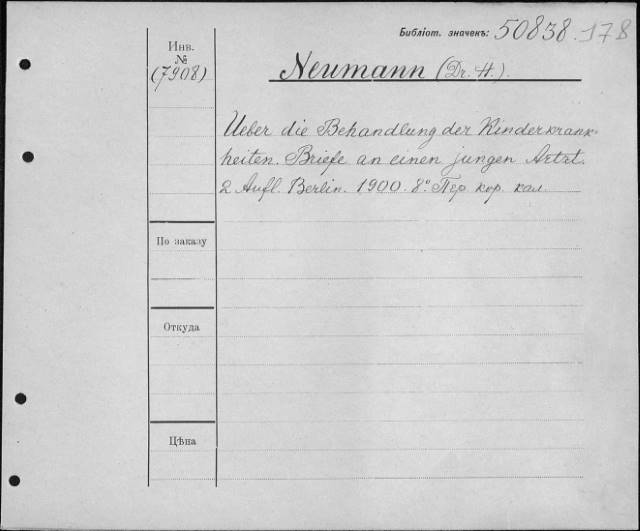 Библіот. значекъ: 50838.178
Инв.
№
(7908)
Neumann (Dr. H.).
Ueber die Behandlung der Kinderkrank-
heiten. Briefe an einen jungen Artzt.
2 Aufl. Berlin. 1900. 8º Пер. кор. кал.
По заказу
Откуда
Цѣна